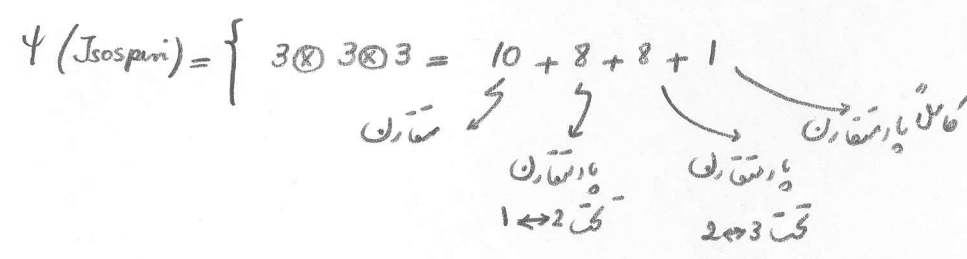 Ψ (Isospin) = { 3⊗3⊗3 = 10 + 8 + 8 + 1
متقارن
پادمتقارن تحت 1↔2
پادمتقارن تحت 2↔3
کاملاً پادمتقارن